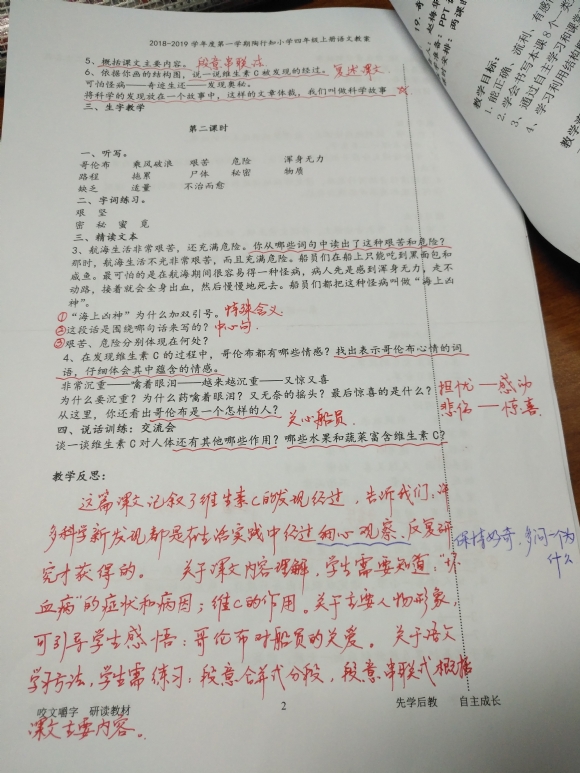 2018-2019 学年度第一学期陶行知小学四年级上册语文教案
5、概括课文主要内容。 段意串联法
6、依据你画的结构图，说一说维生素 C 被发现的经过。 复述课文
可怕怪病——奇迹生还——发现奥秘。
将科学的发现放在一个故事中，这样的文章体裁，我们叫做科学故事 ☆
三、生字教学
第二课时
一、听写。
哥伦布 乘风破浪 艰苦 危险 浑身无力
路程 拖累 尸体 秘密 物质
缺乏 适量 不治而愈
二、字词练习。
艰 坚
密 秘 蜜 觅
三、精读文本
3、航海生活非常艰苦，还充满危险。你从哪些词句中读出了这种艰苦和危险？
那时，航海生活不光非常艰苦，而且充满危险。船员们在船上只能吃到黑面包和
咸鱼。最可怕的是在航海期间很容易得一种怪病，病人先是感到浑身无力，走不
动路，接着就会全身出血，然后慢慢地死去。船员们都把这种怪病叫做“海上凶
神”。
①“海上凶神”为什么加双引号。 特殊含义
②这段话是围绕哪句话来写的？ 中心句.
③艰苦、危险分别体现在何处？
4、在发现维生素 C 的过程中，哥伦布都有哪些情感？找出表示哥伦布心情的词
语，仔细体会其中蕴含的情感。
非常沉重——噙着眼泪——越来越沉重——又惊又喜
为什么要沉重？为什么药噙着眼泪？又无奈的摇头？最后惊喜的是什么？ 担忧——感动
从这里，你还看出哥伦布是一个怎样的人？ 关心船员. 悲伤——惊喜
四、说话训练：交流会
谈一谈维生素 C 对人体还有其他哪些作用？哪些水果和蔬菜富含维生素 C？
教学反思：
这篇课文记叙了维生素C的发现经过，告诉我们：许
多科学新发现都是在生活实践中经过细心观察、反复研 保持好奇，多问一个为
究才获得的。 关于课文内容理解，学生需要知道：“坏 什么
血病”的症状和病因；维C的作用。关于主要人物形象，
可引导学生感悟：哥伦布对船员的关爱。 关于语文
学习方法，学生需练习：段意合并式分段，段意串联式概括
咬文嚼字 研读教材 2 先学后教 自主成长
课文主要内容。
教学目标：
1. 能正确、流利、有感
2. 学会书写本课 8 个
3、通过自主学习和课
4、学习利用结构